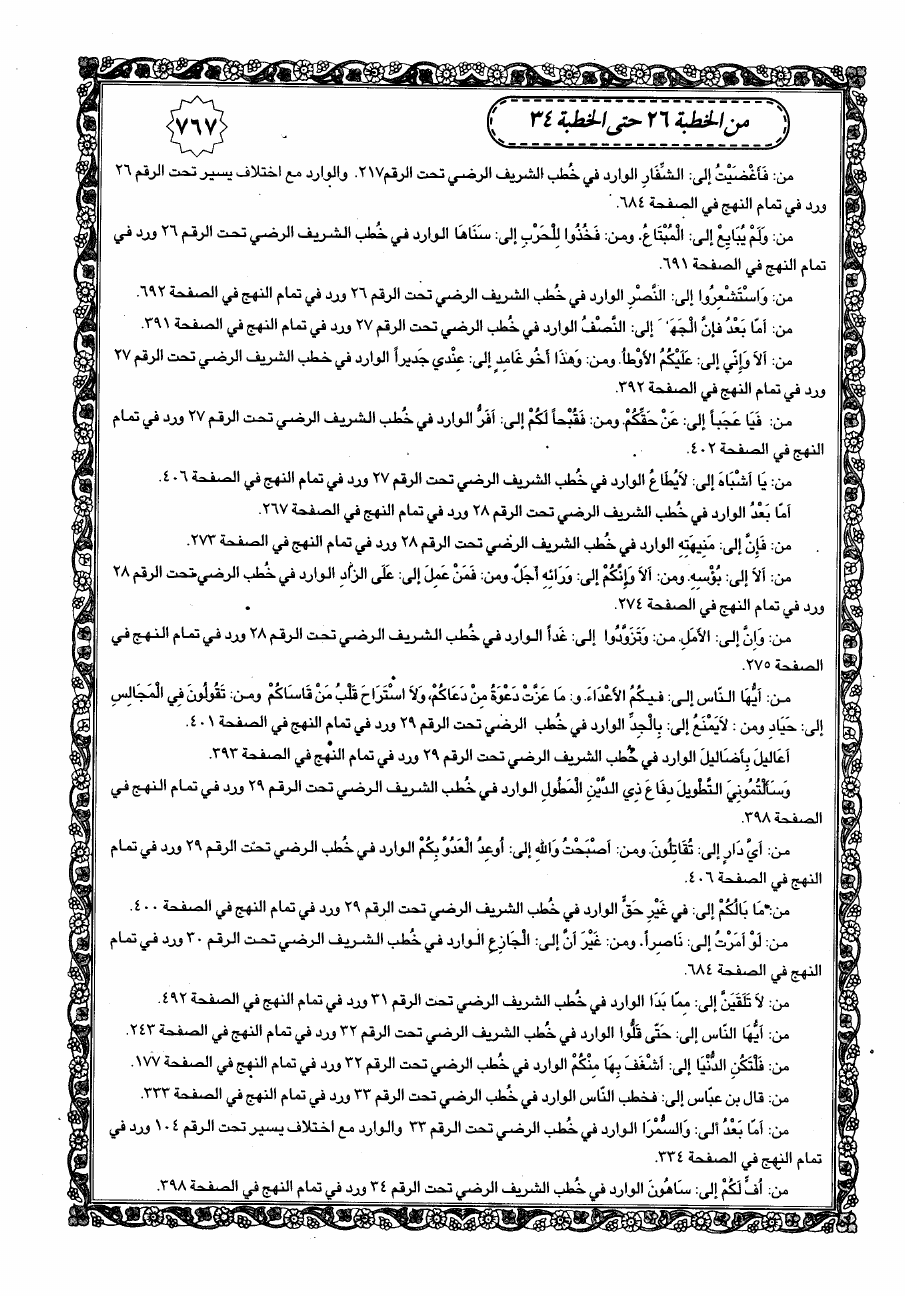 من الخطبة ٢٦ حتى الخطبة ٣٤
٧٦٧
من: فَأَغْضَيْتُ إلى: الشِّفَارِ الوارد في خُطب الشريف الرضي تحت الرقم٢١٧. والوارد مع اختلاف يسير تحت الرقم ٢٦
ورد في تمام النهج في الصفحة ٦٨٤.
من: وَلَمْ يُبَايِعْ إلى: الْمُبْتَاعُ. ومن: فَخُذُوا لِلْحَرْبِ إلى: سَنَاهَا الوارد في خُطب الشريف الرضي تحت الرقم ٢٦ ورد في
تمام النهج في الصفحة ٦٩١.
من: وَاسْتَشْعِرُوا إلى: النَّصْرِ الوارد في خُطب الشريف الرضي تحت الرقم ٢٦ ورد في تمام النهج في الصفحة ٦٩٢.
من: أمّا بَعْدُ فإنَّ إلى: النَّصْفُ الوارد في خُطب الشريف الرضي تحت الرقم ٢٧ ورد في تمام النهج في الصفحة ٣٩١.
من: ألاَ وَإنّي إلى: عَلَيْكُمُ الأوْطَأُ. ومن: وَهَذَا أخُو غَامِدٍ إلى: عِنْدي جَديراً الوارد في خطب الشريف الرضي تحت الرقم ٢٧
ورد في تمام النهج في الصفحة ٣٩٢.
من: فَيَا عَجَباً إلى: عَنْ حَقِّكُمْ. ومن: فَقُبْحاً لَكُمْ إلى: أفَرُّ الوارد في خُطب الشريف الرضي تحت الرقم ٢٧ ورد في تمام
النهج في الصفحة ٤٠٢.
من: يَا أشْبَاهَ إلى: لاَيُطَاعُ الوارد في خُطب الشريف الرضي تحت الرقم ٢٧ ورد في تمام النهج في الصفحة ٤٠٦.
أمّا بَعْدُ الوارد في خُطب الشريف الرضي تحت الرقم ٢٨ ورد في تمام النهج في الصفحة ٢٦٧.
من: فَإنَّ إلى: مَنِيهَتِهِ الوارد في خُطب الشريف الرضي تحت الرقم ٢٨ ورد في تمام النهج في الصفحة ٢٧٣.
من: ألاَ إلى: بُؤْسِهِ. ومن: ألاَ وَإنَّكُمْ إلى: وَرَائِهِ أجَلٌ. ومن: فَمَنْ عَمِلَ إلى: عَلَى الزَّادِ الوارد في خُطب الرضي تحت الرقم ٢٨
ورد في تمام النهج في الصفحة ٢٧٤.
من: وَإنَّ إلى: الأمَلِ. من: وَتَزَوَّدُوا إلى: غَداً الوارد في خُطب الشريف الرضي تحت الرقم ٢٨ ورد في تمام النهج في
الصفحة ٢٧٥.
من: أيُّهَا النّاس إلى: فيكُمُ الأعْدَاءَ. و: مَا عَزَّتْ دَعْوَةُ مِنْ دَعَاكُمْ، وَلاَ اسْتَرَاحَ قَلْبُ مَنْ قَاسَاكُمْ ومن: تَقُولُونَ فِي الْمَجَالِسِ
إلى: حَيَادِ ومن : لاَيَمْنَعُ إلى: بِالْجِدِّ الوارد في خُطب الرضي تحت الرقم ٢٩ ورد في تمام النهج في الصفحة ٤٠١.
أعَاليلَ بِأضَاليلَ الوارد في خُطب الشريف الرضي تحت الرقم ٢٩ ورد في تمام النهج في الصفحة ٣٩٣.
وَسَألْتُمُونِيَ التَّطْويلَ دِفَاعَ ذِي الدَّيْنِ الْمَطُولِ الوارد في خُطب الشريف الرضي تحت الرقم ٢٩ ورد في تمام النهج في
الصفحة ٣٩٨.
من: أيَّ دَارٍ إلى: تُقَاتِلُونَ ومن: أصْبَحْتُ وَاللهِ إلى: أوعِدُ الْعَدُوَّ بِكُمْ الوارد في خُطب الرضي تحت الرقم ٢٩ ورد في تمام
النهج في الصفحة ٤٠٦.
من: مَا بَالُكُمْ إلى: في غَيْرِ حَقٍّ الوارد في خُطب الشريف الرضي تحت الرقم ٢٩ ورد في تمام النهج في الصفحة ٤٠٠.
من: لَوْ أمَرْتُ إلى: نَاصِراً. ومن: غَيْرَ أنَّ إلى: الْجَازِعِ الوارد في خُطب الشريف الرضي تحت الرقم ٣٠ ورد في تمام
النهج في الصفحة ٦٨٤.
من: لاَ تَلَقَيَنَّ إلى: مِمّا بَدَا الوارد في خُطب الشريف الرضي تحت الرقم ٣١ ورد في تمام النهج في الصفحة ٤٩٢.
من: أيُّهَا النّاس إلى: حَتّى قَلُّوا الوارد في خُطب الشريف الرضي تحت الرقم ٣٢ ورد في تمام النهج في الصفحة ٢٤٣.
من: فَلْتَكُنِ الدُّنْيَا إلى: أشْغَفَ بِهَا مِنْكُمْ الوارد في خُطب الرضي تحت الرقم ٣٢ ورد في تمام النهج في الصفحة ١٧٧.
من: قال بن عبّاس إلى: فخطب النّاس الوارد في خُطب الرضي تحت الرقم ٣٣ ورد في تمام النهج في الصفحة ٣٣٣.
من: أمّا بَعْدُ ألى: وَالسُّمْرَا الوارد في خُطب الرضي تحت الرقم ٣٣ والوارد مع اختلاف يسير تحت الرقم ١٠٤ ورد في
تمام النهج في الصفحة ٣٣٤.
من: أفٍّ لَكُمْ إلى: سَاهُونَ الوارد في خُطب الشريف الرضي تحت الرقم ٣٤ ورد في تمام النهج في الصفحة ٣٩٨.